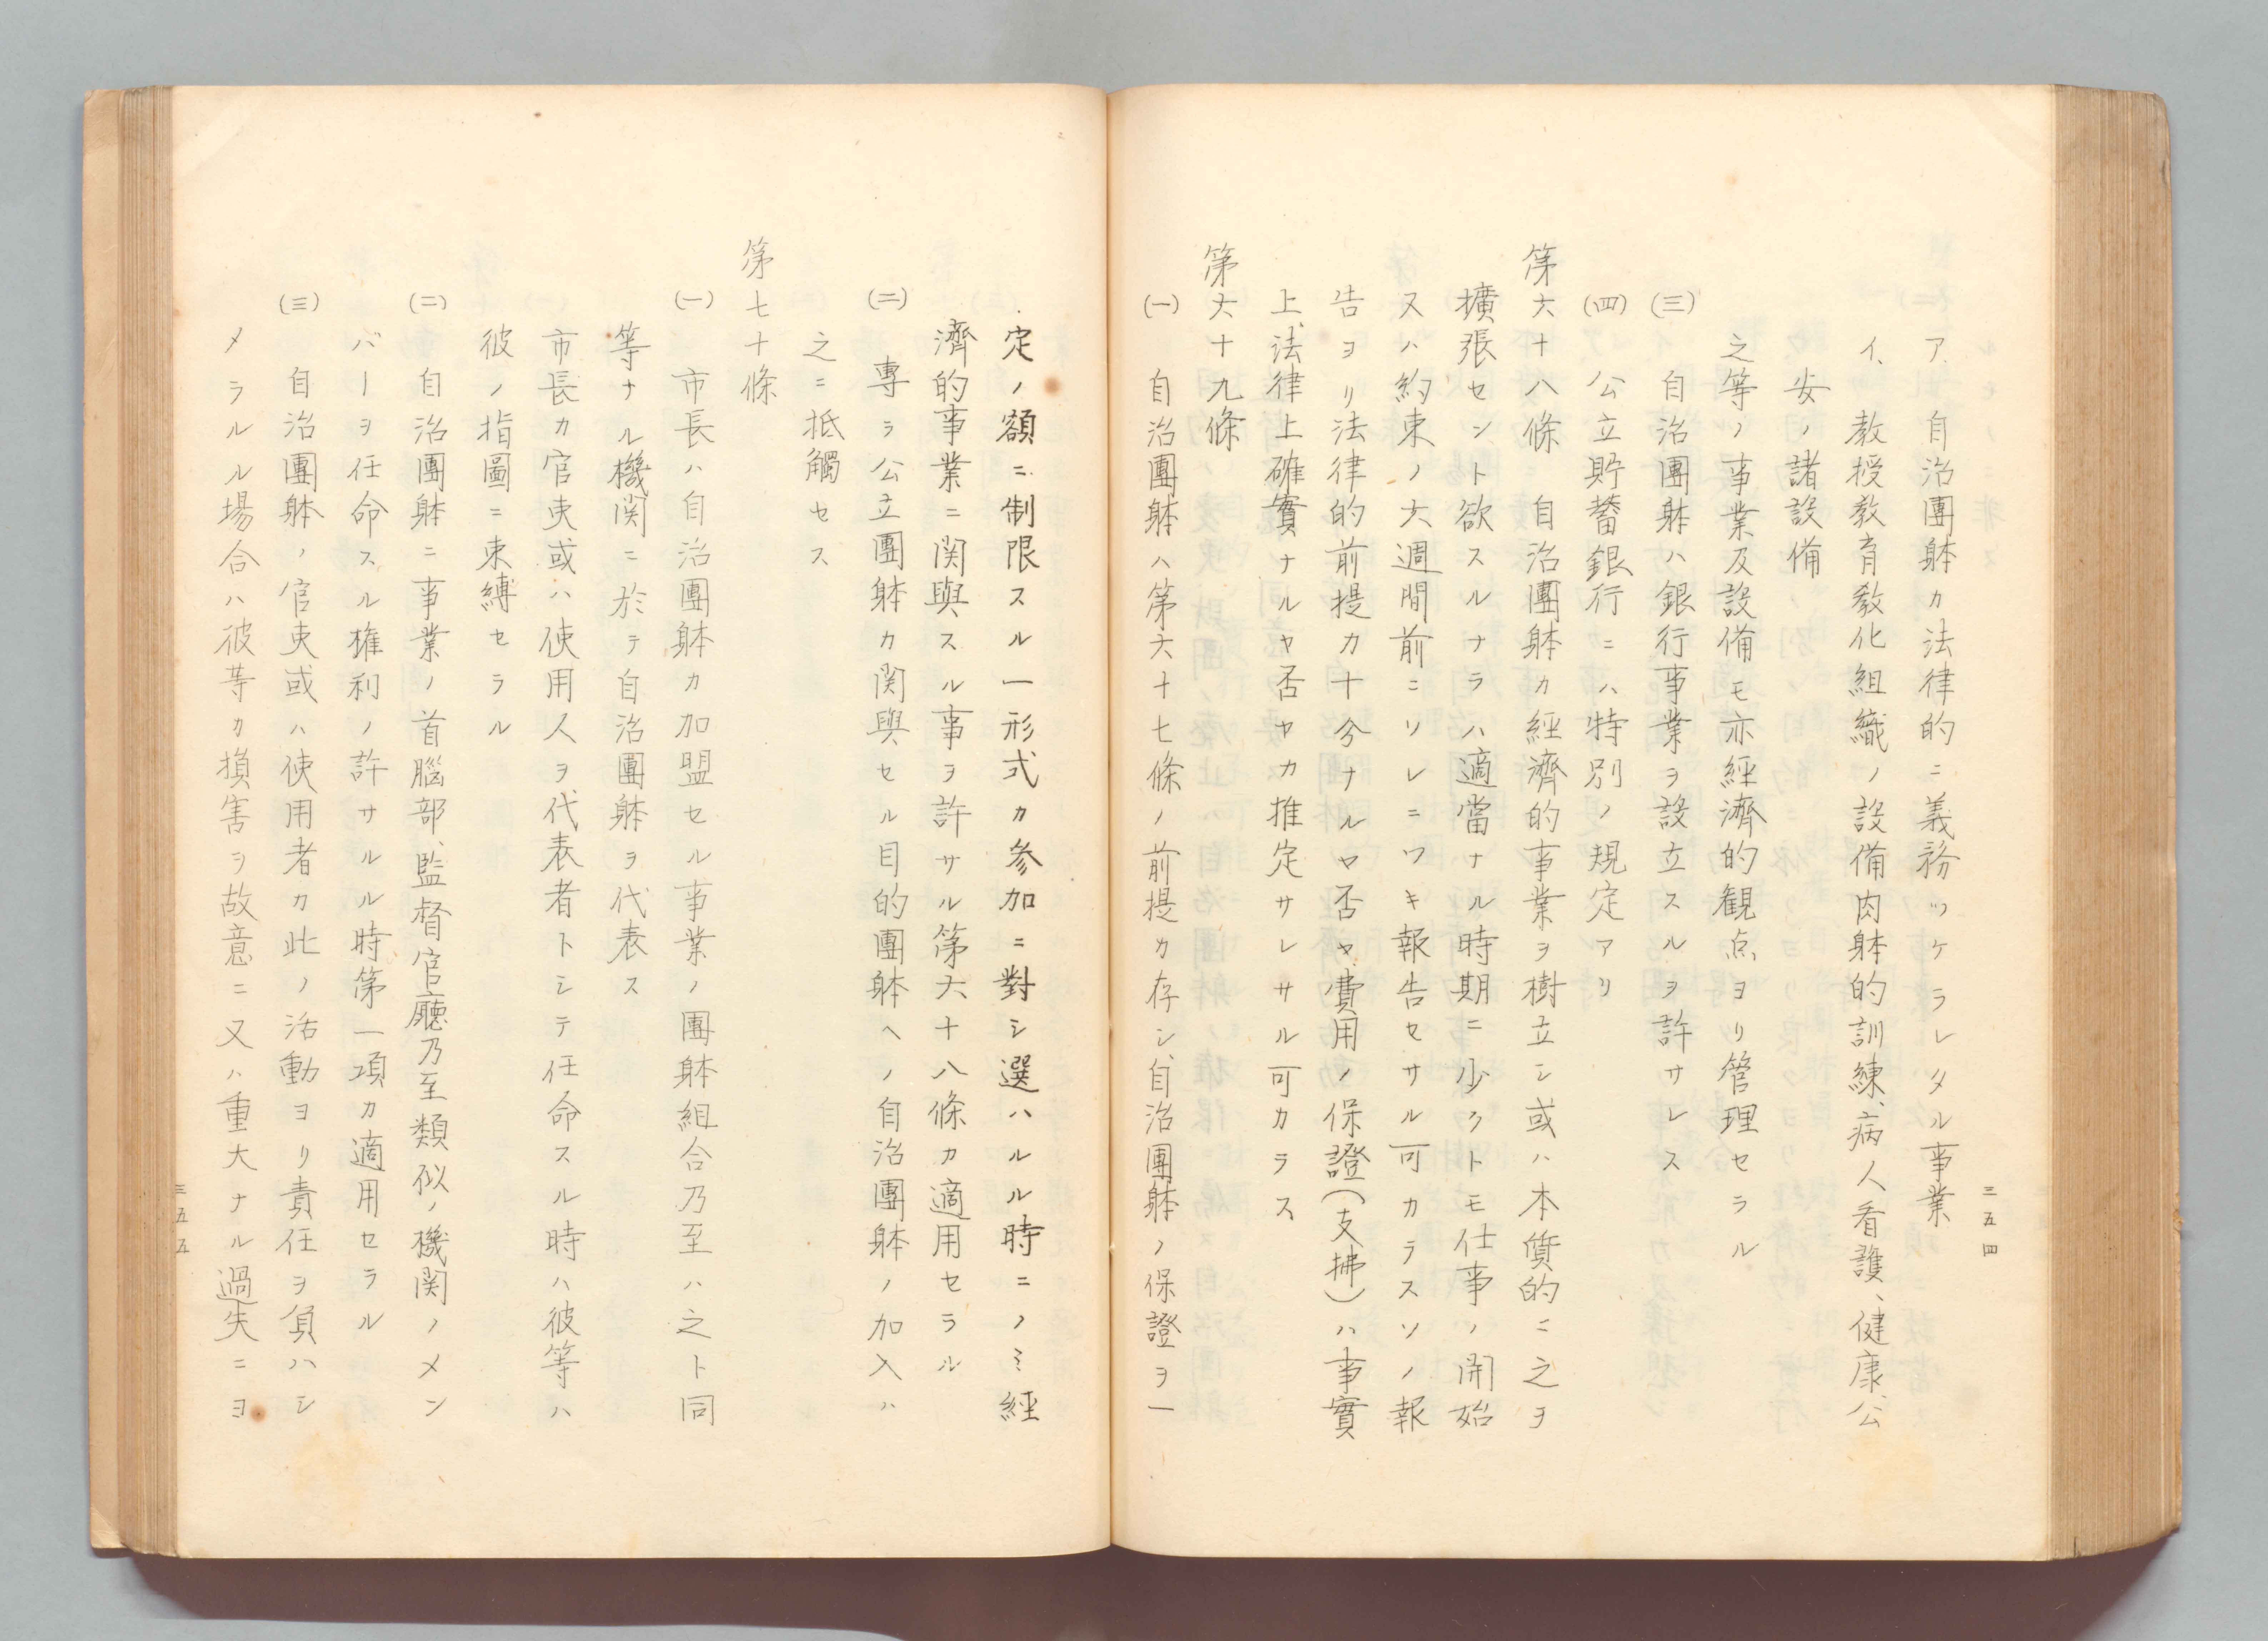 三五四
ア、自治團躰カ法律的ニ義務ツケラレタル事業
イ、教授教育教化組織ノ設備肉躰的訓練、病人看護、健康、公
安ノ諸設備
之等ノ事業及設備モ亦經濟的観点ヨリ管理セラル
(三)自治團躰ハ銀行事業ヲ設立スルヲ許サレス
(四)公立貯蓄銀行ニハ特別ノ規定アリ
第六十八條　自治團躰カ經濟的事業ヲ樹立シ或ハ本質的ニ之ヲ
擴張セント欲スルナラハ適當ナル時期ニ少クトモ仕事ノ開始
又ハ約束ノ六週間前ニソレニツキ報告セサル可カラスソノ報
告ヨリ法律的前提カ十分ナルヤ否ヤ費用ノ保證(支拂)ハ事實
上、法律上確實ナルヤ否ヤカ推定サレサル可カラス
第六十九條
(一)自治團躰ハ第六十七條ノ前提カ存シ、自治團躰ノ保證ヲ一
定ノ額ニ制限スル一形式カ参加ニ對シ選ハルル時ニノミ經
濟的事業ニ関與スル事ヲ許サル第六十八條カ適用セラル
(二)專ラ公立團躰カ関與セル目的團躰ヘノ自治團躰ノ加入ハ
之ニ抵觸セス
第七十條
(一)市長ハ自治團躰カ加盟セル事業ノ團躰組合乃至ハ之ト同
等ナル機関ニ於テ自治團躰ヲ代表ス
市長カ官吏或ハ使用人ヲ代表者トシテ任命スル時ハ彼等ハ
彼ノ指圖ニ束縛セラル
(二)自治團躰ニ事業ノ首腦部、監督官廳乃至類似ノ機関ノメン
バーヲ任命スル権利ノ許サルル時第一項カ適用セラル
(三)自治團躰ノ官吏或ハ使用者カ此ノ活動ヨリ責任ヲ負ハシ
メラルル場合ハ彼等カ損害ヲ故意ニ又ハ重大ナル過失ニヨ
三五五